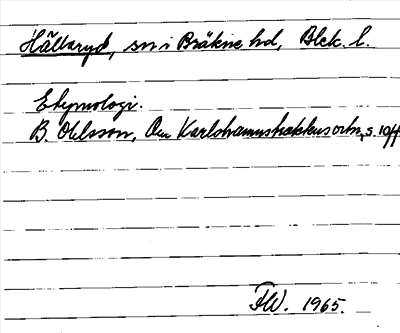 Hällaryd, sn i Bräkne hd, Blek. l.
Etymologi.
B. Ohlsson, Om Karlshamnstraktens ortn, s. 10ff
FW. 1965.